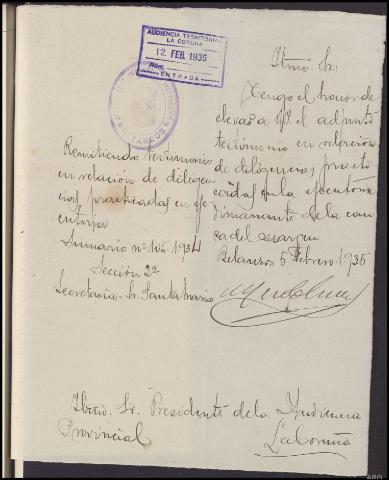 AUDIENCIA TERRITORIAL
LA CORUÑA
12 FEB. 1935
Núm.
ENTRADA
Iltmo. Sr.:
Tengo el honor de
elevar a V.I. el adjunto
testimonio en relacion
de diligencias practi
cadas en la ejecutoria
dimanante de la cau
sa del margen
Betanzos 5 Febrero 1935
Remitiendo testimonio
en relacion de diligen
cias practicadas en eje
cutoria
Sumario nº 106-1934
Sección 2ª
Secretaría Sr. Santa María
Iltmo. Sr. Presidente de la Audiencia
Provincial
La Coruña